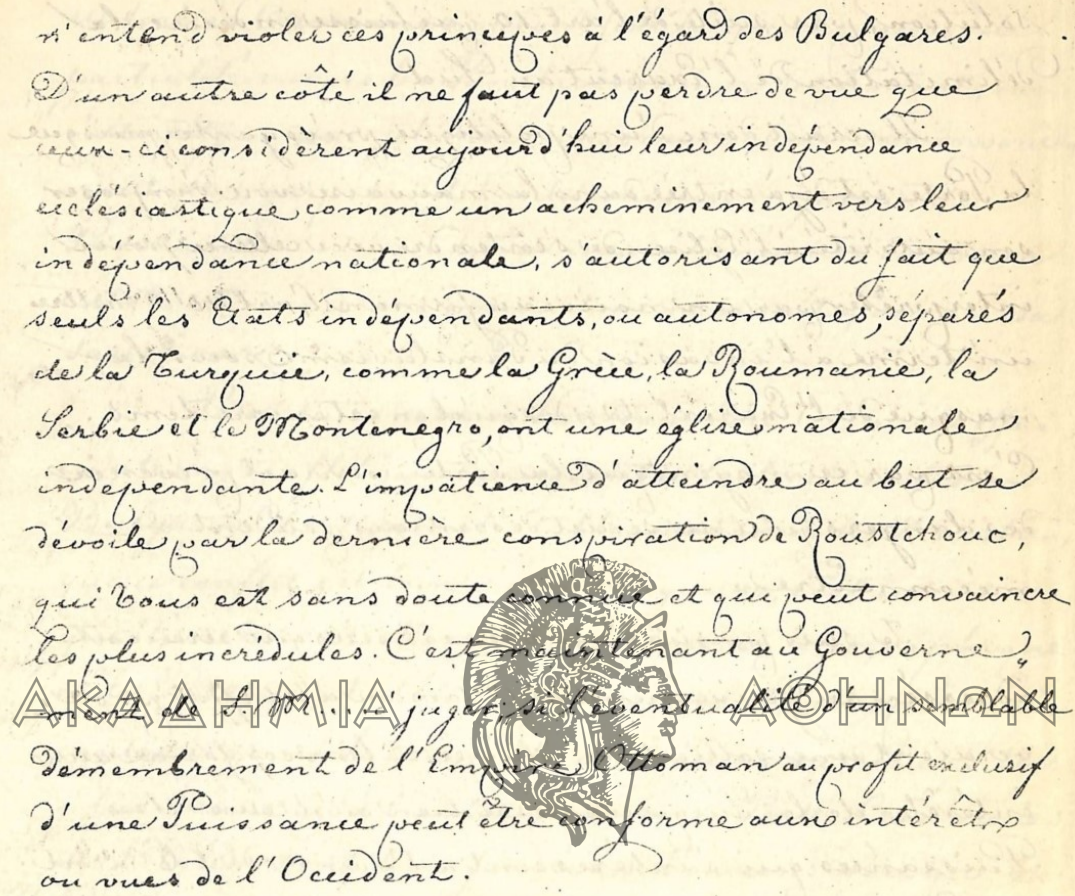 n'entend violer ces principes à l'égard des Bulgares.
D'un autre côté il ne faut pas perdre de vue que
ceux-ci considèrent aujourd'hui leur indépendance
ecclésiastique comme un acheminement vers leur
indépendance nationale, s'autorisant du fait que
seuls les Etats indépendants, ou autonomes, séparés
de la Turquie, comme la Grèce, la Roumanie, la
Serbie et le Montenegro, ont une église nationale
indépendante. L'impatience d'atteindre au but se
dévoile par la dernière conspiration de Roustchouc,
qui Vous est sans doute connue et qui peut convaincre
les plus incrédules. C'est maintenant au Gouverne„
ment de S. M. ... juger, si l'éventualité d'un semblable
ΑΚΑΔΗΜΙΑ ΑΘΗΝΩΝ
démembrement de l'Empire Ottoman au profit exclusif
d'une Puissance peut être conforme aux intérêts
ou vues de l'Occident.